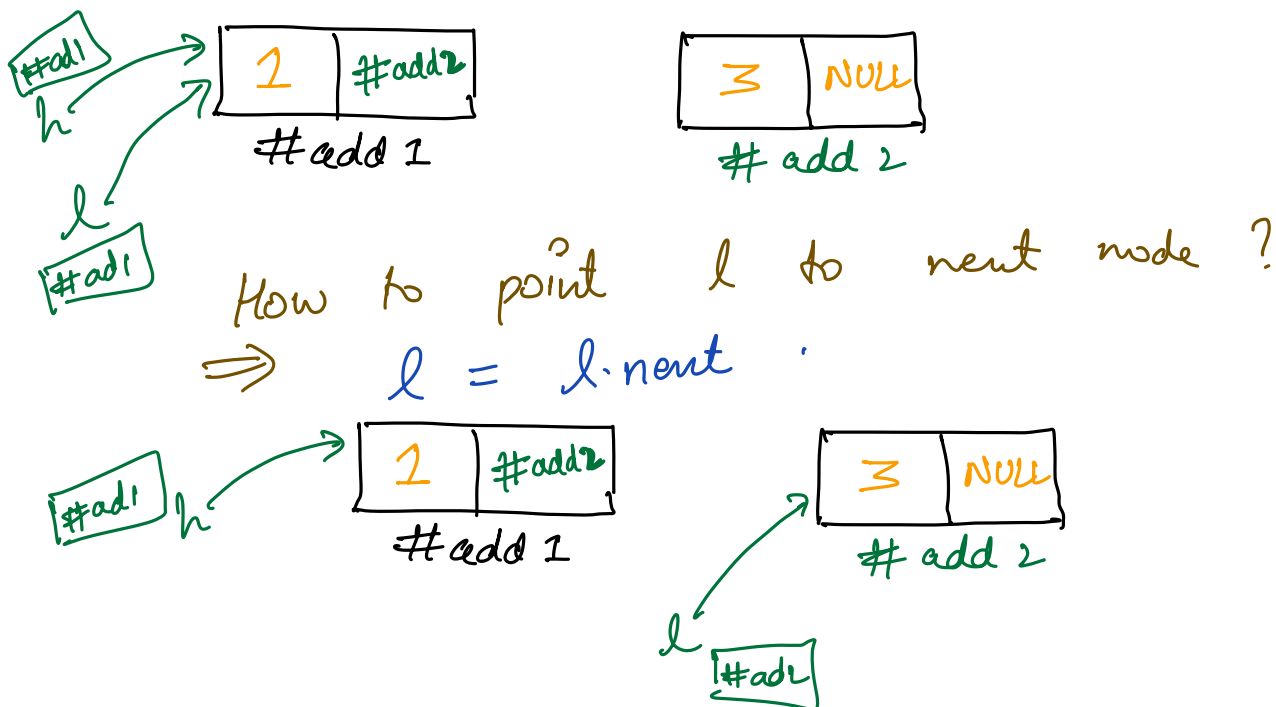 #ad1
h
1 #add2
#add 1
3 NULL
# add 2
l
#ad1
How to point l to next node ?
⇒ l = l.next
#ad1 h
1 #add2
#add 1
3 NULL
# add 2
l
#ad2